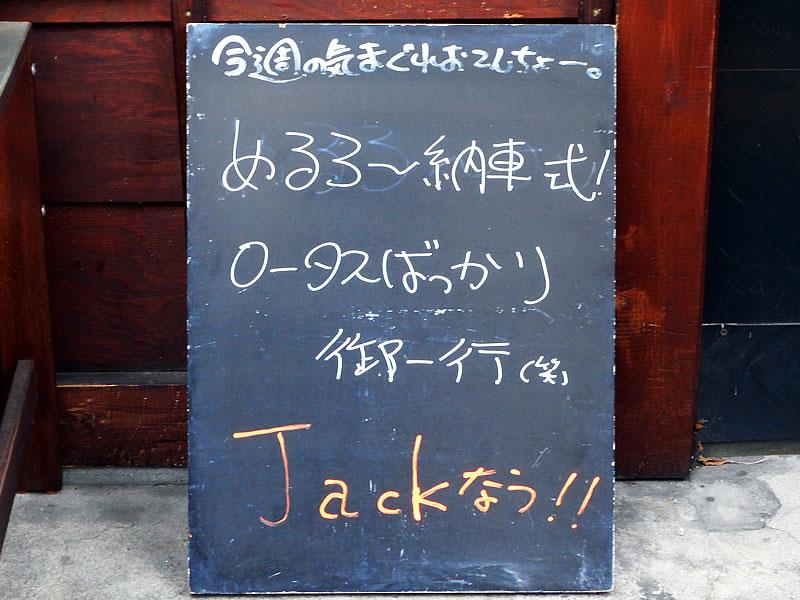 今週の気まぐれおてんちょー。
めるろ〜納車式!
ロータスばっかり
御一行(笑)
Jackなう!!